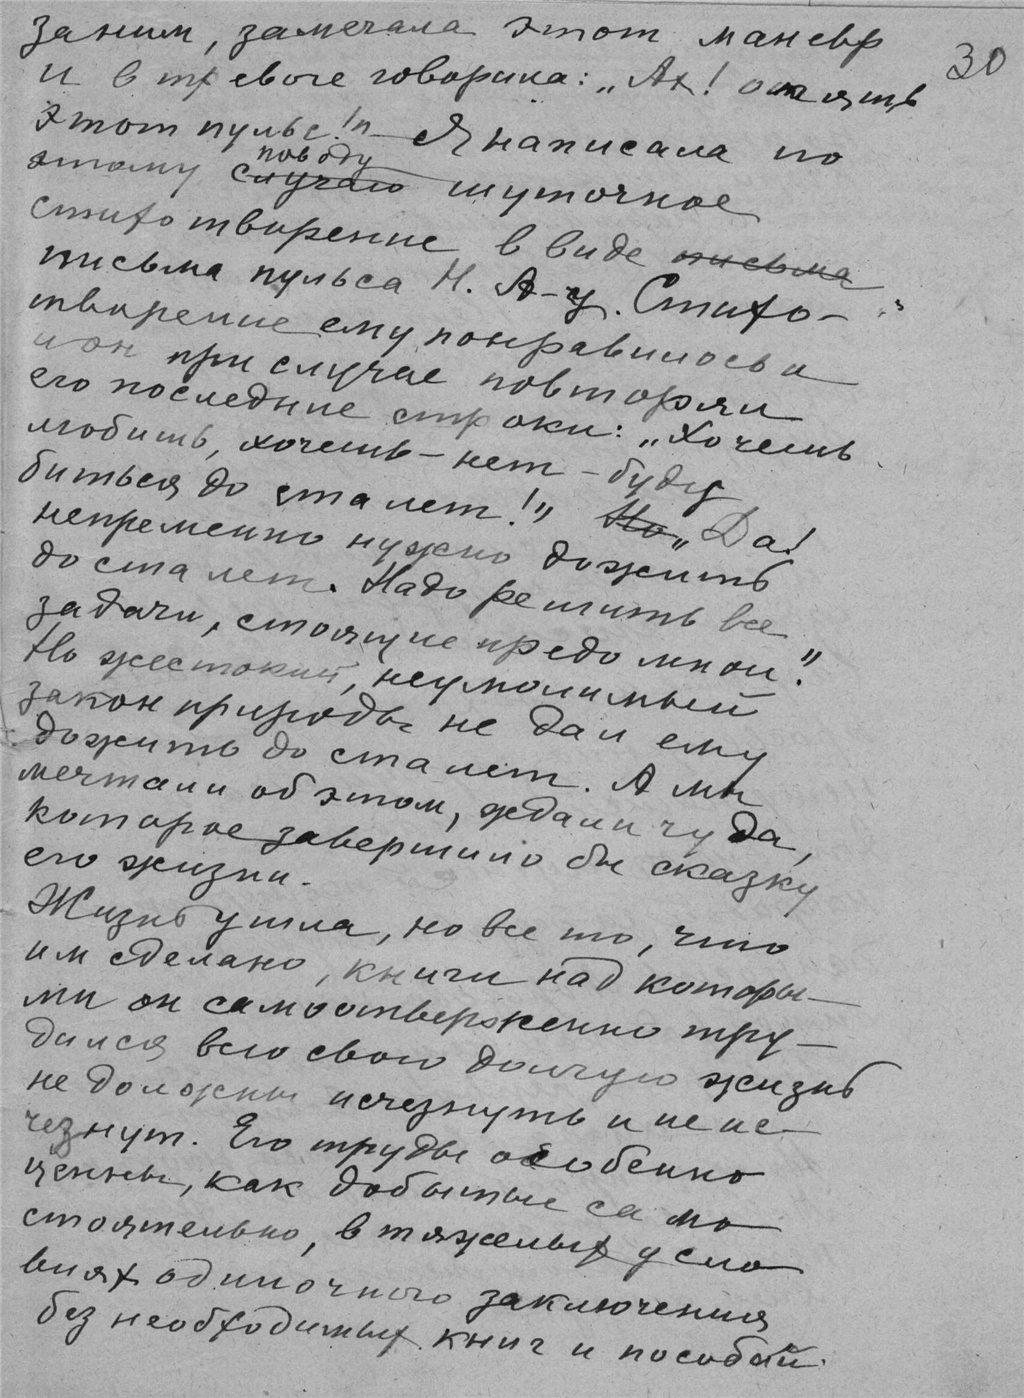 30
за ним, замечала этот маневр
и в тревоге говорила: „Ах! опять
этот пульс!" Я написала по
поводу
этому случаю шуточное
стихотворение в виде письма
письма пульса Н. А-у. Стихо-
творение ему понравилось и
и он при случае повторял
его последние строки: „Хочешь
любить, хочешь – нет – буду
биться до ста лет!" Но „Да!
непременно нужно дожить
до ста лет. Надо решить все
задачи, стоящие предо мной."
Но жестокий, неумолимый
закон природы не дал ему
дожить до ста лет. А мы
мечтали об этом, ждали чуда,
которое завершило бы сказку
его жизни.
Жизнь ушла, но все то, что
им сделано, книги над которы-
ми он самоотверженно тру-
дился всю свою долгую жизнь
не должны исчезнуть и не ис-
чезнут. Его труды особенно
ценны, как добытые само
стоятельно, в тяжелых усло
виях одиночного заключения
без необходимых книг и пособий.